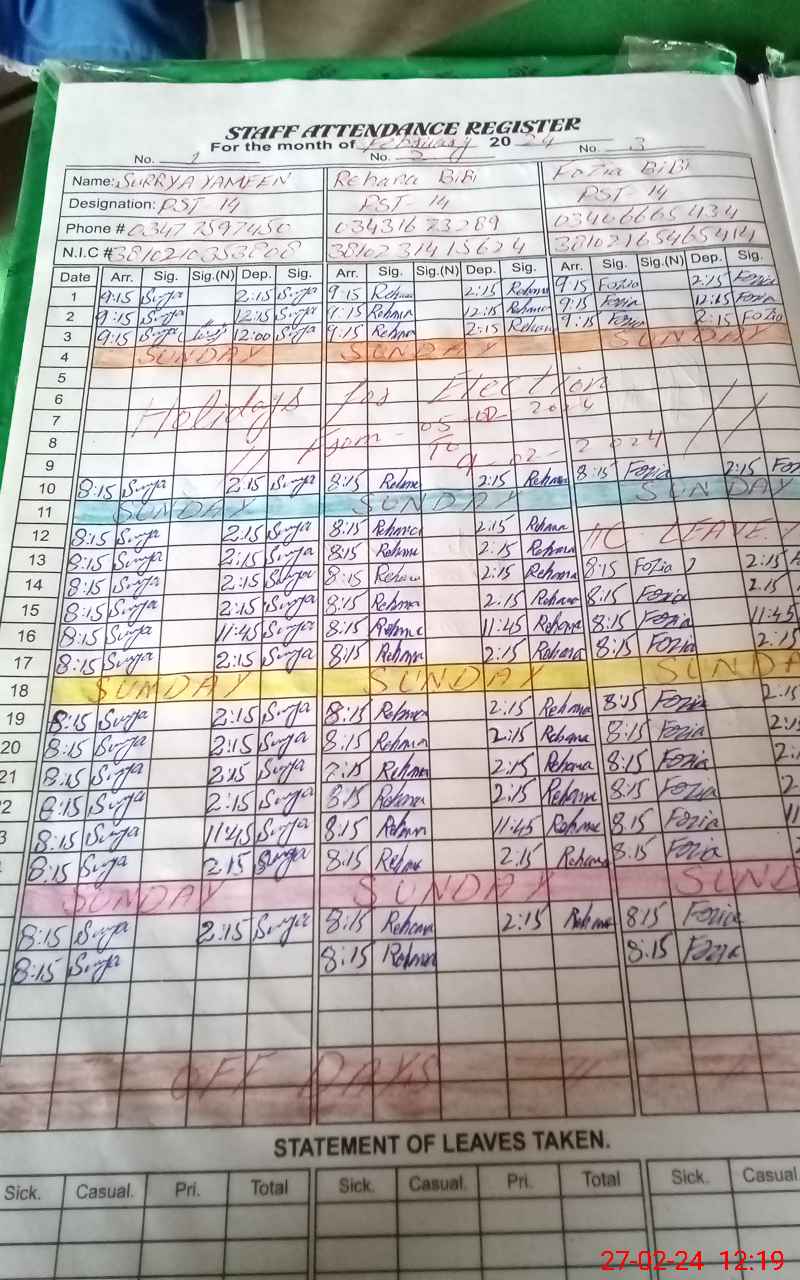 STAFF ATTENDANCE REGISTER
For the month of February 2024
No. 1 No. 2 No. 3
Name: SURRYA YAMEEN Rehana BiBi Fozia BiBi
Designation: PST-14 PST-14 PST-14
Phone # 03477597450 03431673289 03406665434
N.I.C # 3810210353808 3810231415624 38102165465414
Date Arr. Sig. Sig.(N) Dep. Sig. Arr. Sig. Sig.(N) Dep. Sig. Arr. Sig. Sig.(N) Dep. Sig.
1 9:15 Surya 2:15 Surya 9:15 Rehana 2:15 Rehana 9:15 Fozia 2:15 Fozia
2 9:15 Surya 12:15 Surya 9:15 Rehana 12:15 Rehana 9:15 Fozia 12:15 Fozia
3 9:15 Surya 12:00 Surya 9:15 Rehana 2:15 Rehana 9:15 Fozia 2:15 Fozia
4 SUNDAY SUNDAY SUNDAY
5
6 Holidays for Election
7 From - 05-02-2024
8 To
9 9-02-2024
10 8:15 Surya 2:15 Surya 8:15 Rehana 2:15 Rehana 8:15 Fozia 2:15 Fozia
11 SUNDAY SUNDAY SUNDAY
12 8:15 Surya 2:15 Surya 8:15 Rehana 2:15 Rehana LEAVE
13 8:15 Surya 2:15 Surya 8:15 Rehana 2:15 Rehana 8:15 Fozia 2:15
14 8:15 Surya 2:15 Surya 8:15 Rehana 2:15 Rehana 8:15 Fozia 2:15
15 8:15 Surya 2:15 Surya 8:15 Rehana 2:15 Rehana 8:15 Fozia 11:45
16 8:15 Surya 11:45 Surya 8:15 Rehana 11:45 Rehana 8:15 Fozia 2:15
17 8:15 Surya 2:15 Surya 8:15 Rehana 2:15 Rehana
18 SUNDAY SUNDAY SUNDA
19 8:15 Surya 2:15 Surya 8:15 Rehana 2:15 Rehana 8:15 Fozia 2:15
20 8:15 Surya 2:15 Surya 8:15 Rehana 2:15 Rehana 8:15 Fozia
21 8:15 Surya 2:15 Surya Rehana 2:15 Rehana 8:15 Fozia
8:15 Surya 2:15 Surya 8:15 Rehana 2:15 Rehana 8:15 Fozia
8:15 Surya 11:45 Surya 8:15 Rehana 11:45 Rehana 8:15 Fozia
8:15 Surya 2:15 Surya 8:15 Rehana 2:15 Rehana 8:15 Fozia
SUNDAY SUNDAY SUND
8:15 Surya 2:15 Surya 8:15 Rehana 2:15 Rehana 8:15 Fozia
8:15 Surya 8:15 Rehana 8:15 Fozia
OFF DAYS
STATEMENT OF LEAVES TAKEN.
Sick. Casual. Pri. Total Sick. Casual. Pri. Total Sick. Casual
27-02-24 12:19